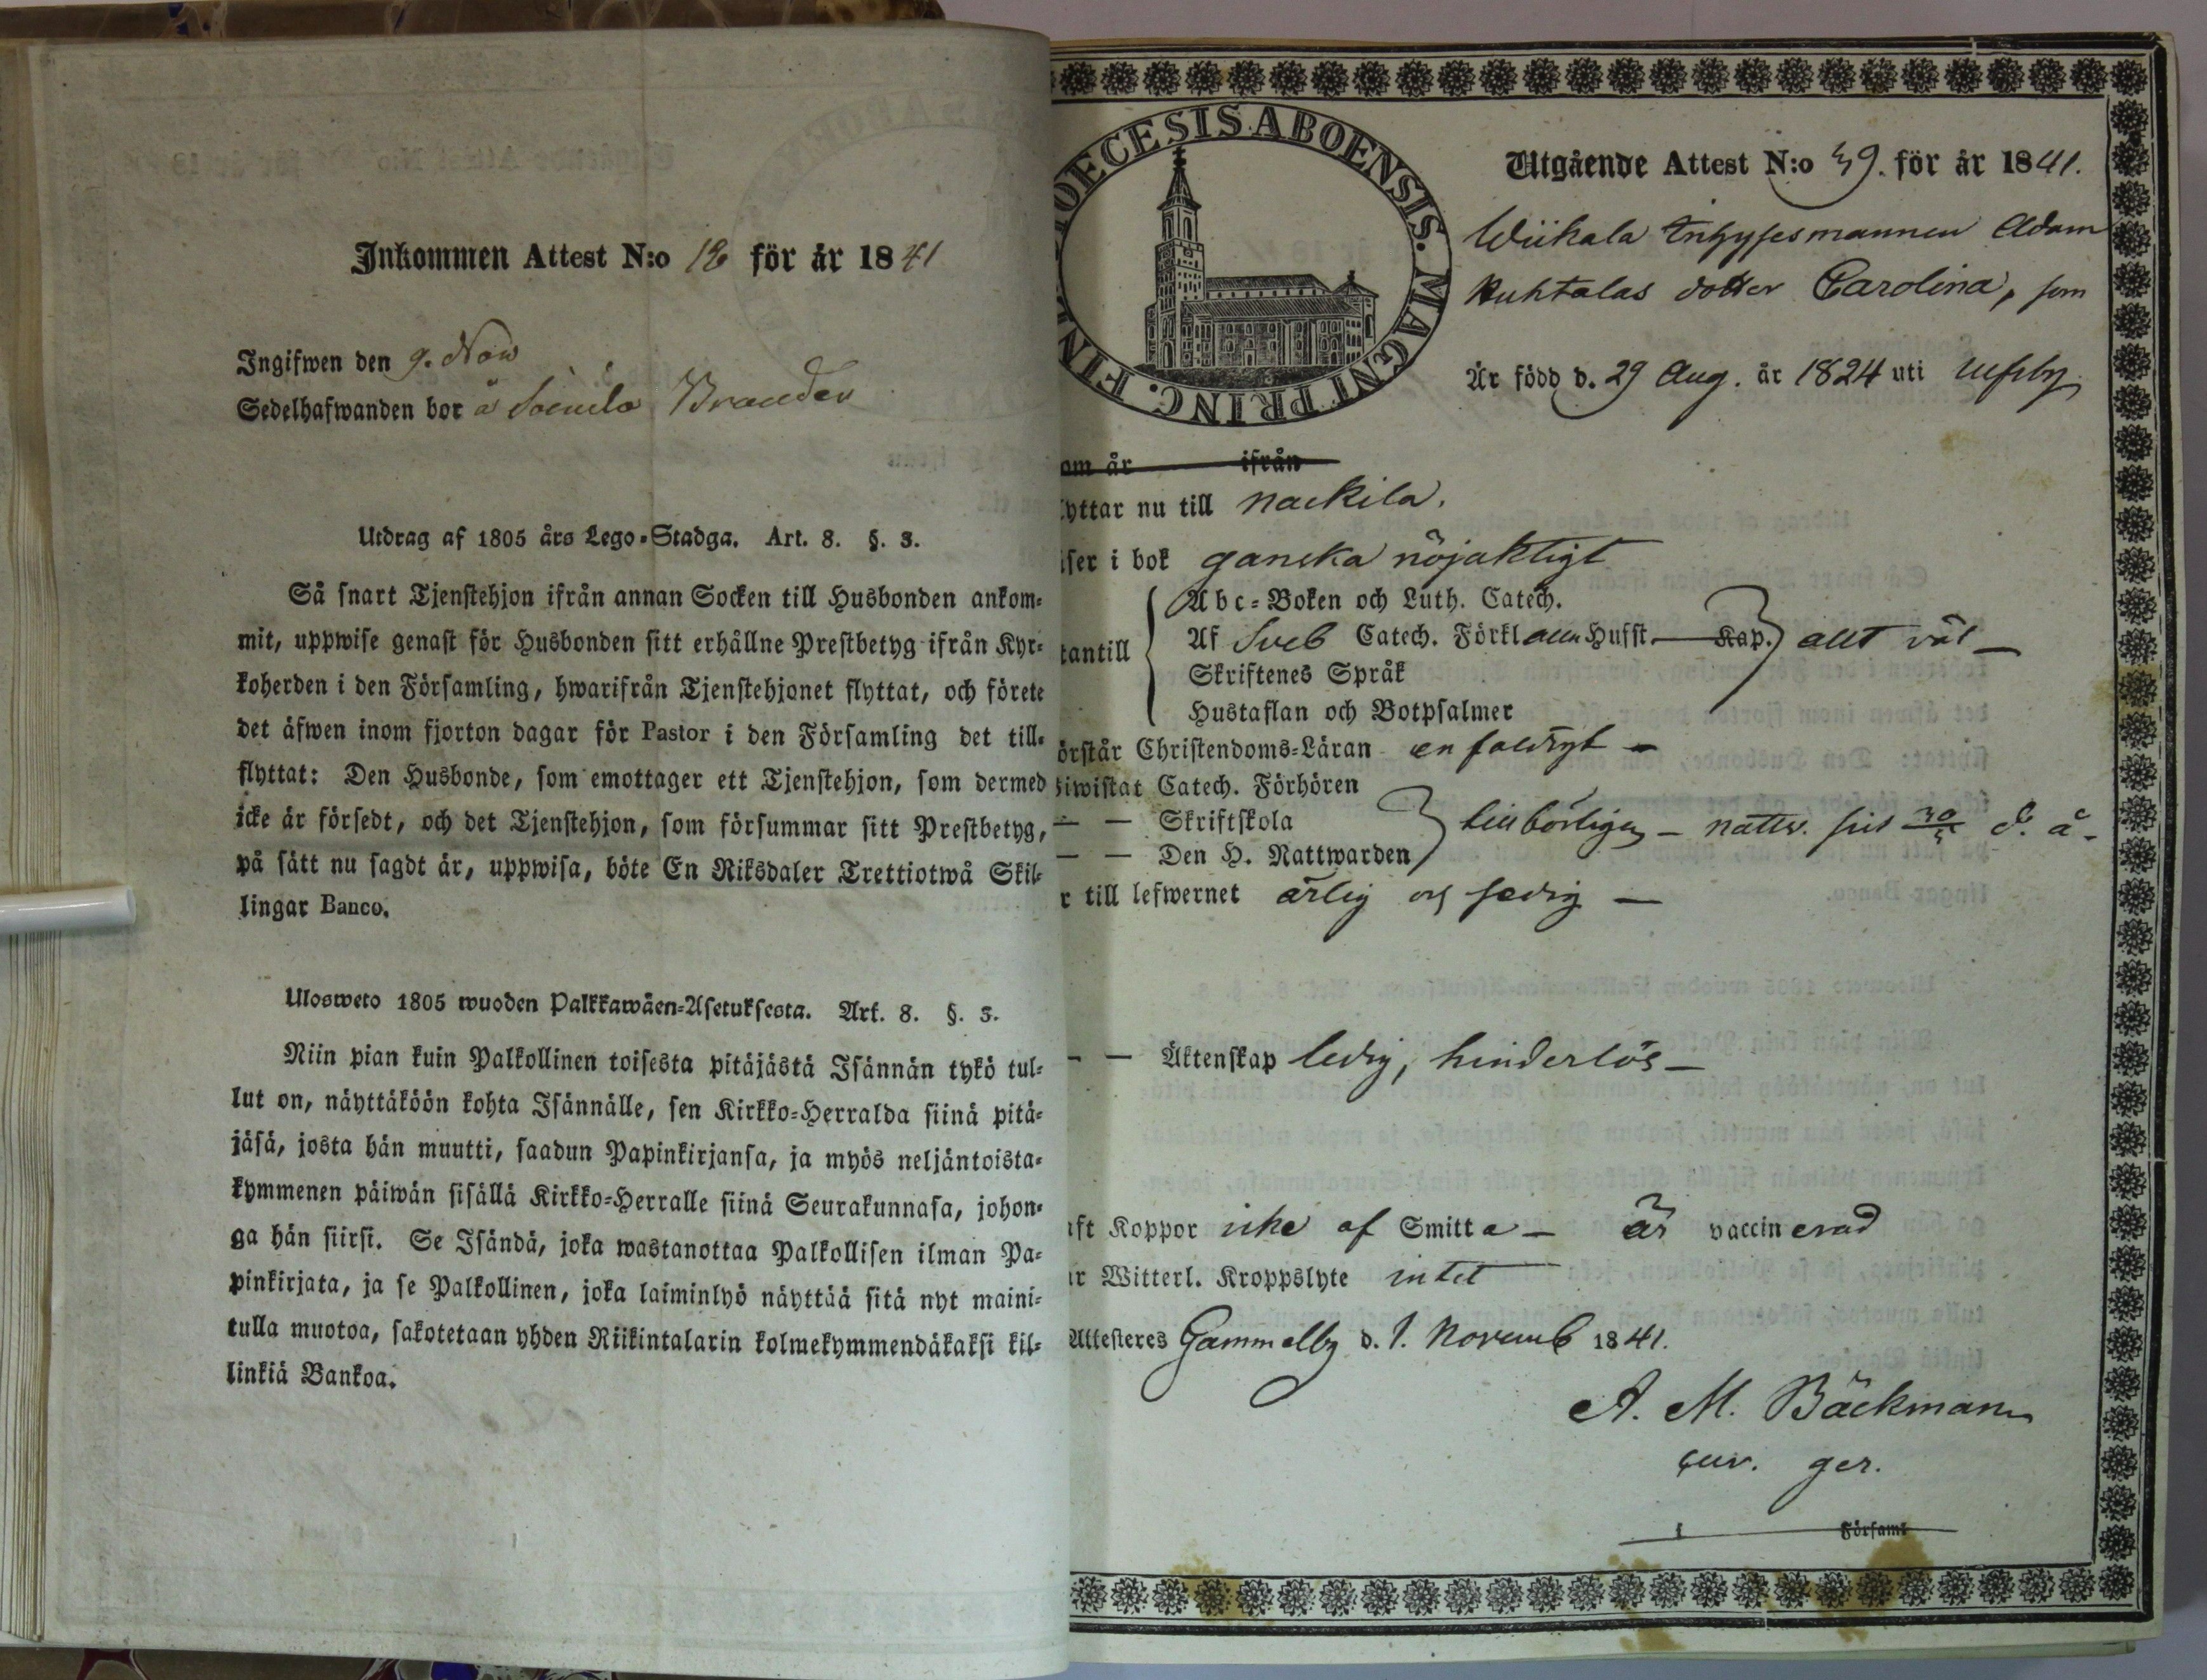 Inkommen Attest N:o 18 för år 1841
Ingifwen den 9. Nov
Sedelhafwanden bor å
Utdrag af 1805 års Lego-Stadga. Art. 8. §. 3.
Så snart Tjenstehjon ifrån annan Socken till Husbonden ankom-
mit, uppwise genast för Husbonden sitt erhållne Prestbetyg ifrån Kyr-
koherden i den Församling, hwarifrån Tjenstehjonet flyttat, och förete
det äfwen inom fjorton dagar för Pastor i den Församling det till-
flyttat: Den Husbonde, som emottager ett Tjenstehjon, som dermed
icke är försedt, och det Tjenstehjon, som försummar sitt Prestbetyg,
på sätt nu sagdt är, uppwisa, böte En Riksdaler Trettiotwå Skil-
lingar Banco.
Ulosweto 1805 wuoden Palkkawäen-Asetuksesta. Art. 8. §. 3.
Niin pian kuin Palkollinen toisesta pitäjästä Isännän tykö tul-
lut on, näyttäköön kohta Isännälle, sen Kirkko-Herralda siinä pitä-
jäsä, josta hän muutti, saadun Papinkirjansa, ja myös neljäntoista-
kymmenen päiwän sisällä Kirkko-Herralle siinä Seurakunnasa, johon-
ga hän siirsi. Se Isändä, joka wastanottaa Palkollisen ilman Pa-
pinkirjata, ja se Palkollinen, joka laiminlyö näyttää sitä nyt maini-
tulla muotoa, sakotetaan yhden Riikintalarin kolmekymmendäkaksi kil-
linkiä Bankoa.
DIOECESIS ABOENSIS. MAGNI PRINC. FIN
Utgående Attest N:o 39. för år 1841.
Wiikala Inhysesmannen Adam
Kuhtalas dotter Carolina, som
Är född d. 29 Aug. år 1824 uti Ulfsby
om år ifrån
yttar nu till Nackila.
ser i bok ganska nöjaktigt
tantill
Abc-Boken och Luth. Catech.
Af Sveb Catech. Förkl allm Husst. Kap. allt väl
Skriftenes Språk
Hustaflan och Botpsalmer
örstår Christendoms-Läran enfaldigt
iwistat Catech. Förhören
— — Skriftskola
— — Den H. Nattwarden
tillbörligen — nattv. sist 30/5 d. å.
r till lefwernet ärlig och sedig —
— — Äktenskap ledig, hinderlös —
ft Koppor icke af Smitta — är vaccinerad
r Witterl. Kroppslyte intet
Attesteres Gammelby d. 1. Novemb 1841.
A. M. Bäckman
cur. ger.
i Församl